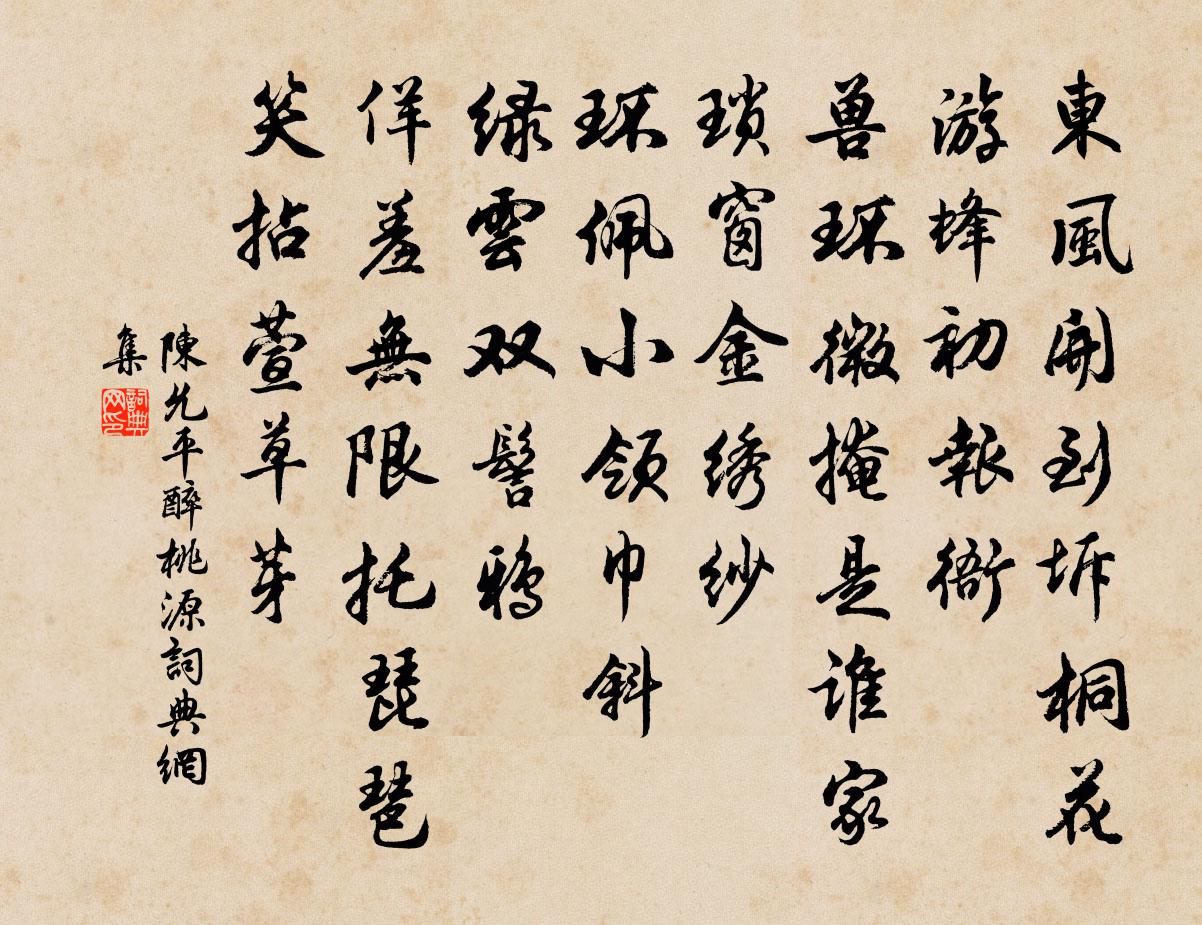 東風開到坼桐花
游蜂初報衙
兽环微掩是誰家
瑣窗金绣紗
环佩小領巾斜
緑雲双髻鴉
佯羞無限托琵琶
笑拈萱草芽
陳允平醉桃源詞典網
集
詞典网印